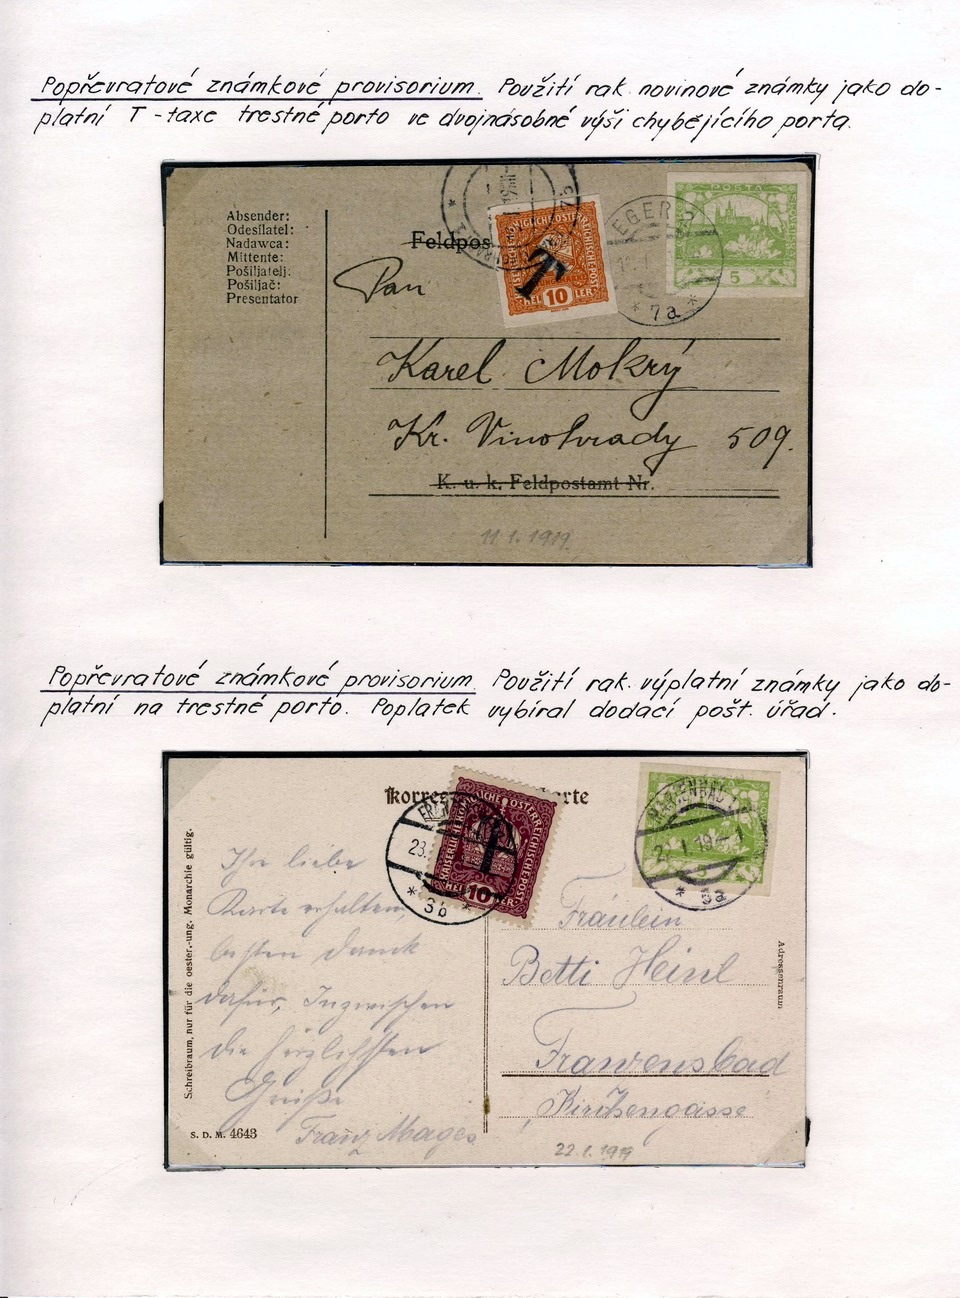 Popřevratové známkové provisorium. Použití rak. novinové známky jako do-
platní T-taxe trestné porto ve dvojnásobné výši chybějícího porta.
Absender:
Odesílatel:
Nadawca:
Mittente:
Pošiljatelj:
Pošiljač:
Presentator
Feldpos
KAISERLICHE KÖNIGLICHE ÖSTERREICHISCHE POST
T
HEL 10 LER
POSTA
5
EGER
* 7a *
Pan
Karel Mokrý
Kr. Vinohrady 509.
K. u. k. Feldpostamt Nr.
11.1.1919.
Popřevratové známkové provisorium. Použití rak. výplatní známky jako do-
platní na trestné porto. Poplatek vybíral dodací pošt. úřad.
Korres
rte
KAISERLICHE KÖNIGLICHE ÖSTERREICHISCHE POST
T
HEL 10 LER
23.
* 3b *
MARIENBAD 1
* 5a
Schreibraum, nur für die oester.-ung. Monarchie gültig.
Adressenraum
Ihre liebe
Karte erhalten,
besten Dank
dafür, Inzwischen
die herzlichsten
Grüße
Franz Mages
Fräulein
Betti Heinl
Franzensbad
Kirchengasse
S. D. M. 4643
22.1.1919